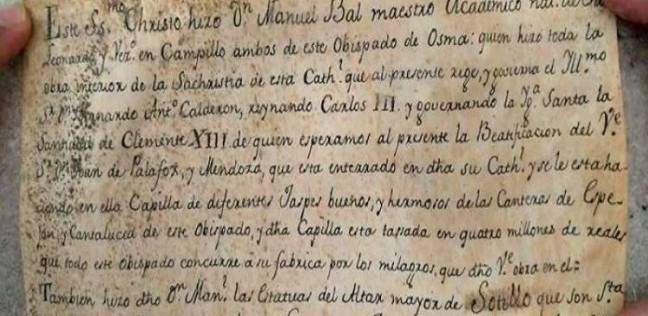 Este Ss.mo Christo hizo Dn. Manuel Bal maestro Academico nat. de
Leonardo y Vez.o en Campillo ambos de este Obispado de Osma: quien hizo toda la
obra interior de la Sachristia de esta Cath.l que al presente rege, y govierna el Ill.mo
Sr. Dn. Bernardo Ant.o Calderon, reynando Carlos III. y governando la Yg.a Santa la
Santidad de Clemente XIII de quien esperamos al presente la Beatificacion del V.e
Sr. Dn. Juan de Palafox, y Mendoza, que esta enterrado en dha su Cath.l y se le esta ha-
ciendo en ella Capilla de diferentes Jaspes buenos, y hermosos de las Canteras de Espe-
jon, y Cantalucia de este Obispado, y dha Capilla esta tasada en quatro millones de reales
que todo este Obispado concurre a su fabrica por los milagros, que dho V.e obra en el=
Tambien hizo dho Dn. Man.l las Estatuas del Altar mayor de Sotillo que son S.ta